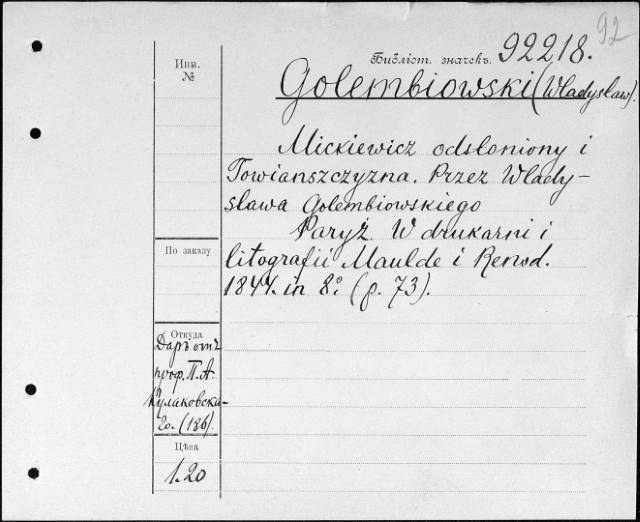 92
Инв.
№
Библіот. значекъ. 92218.
Golembiowski (Władysław).
Mickiewicz odsłoniony i
Towianszczyzna. Przez Włady-
sława Golembiowskiego
Paryż. W drukarni i
litografii Maulde i Renod.
1844. in 8° (p. 73).
По заказу
Откуда
Даръ отъ
проф. П. А.
Кулаковска-
го. (186).
Цѣна
1.20